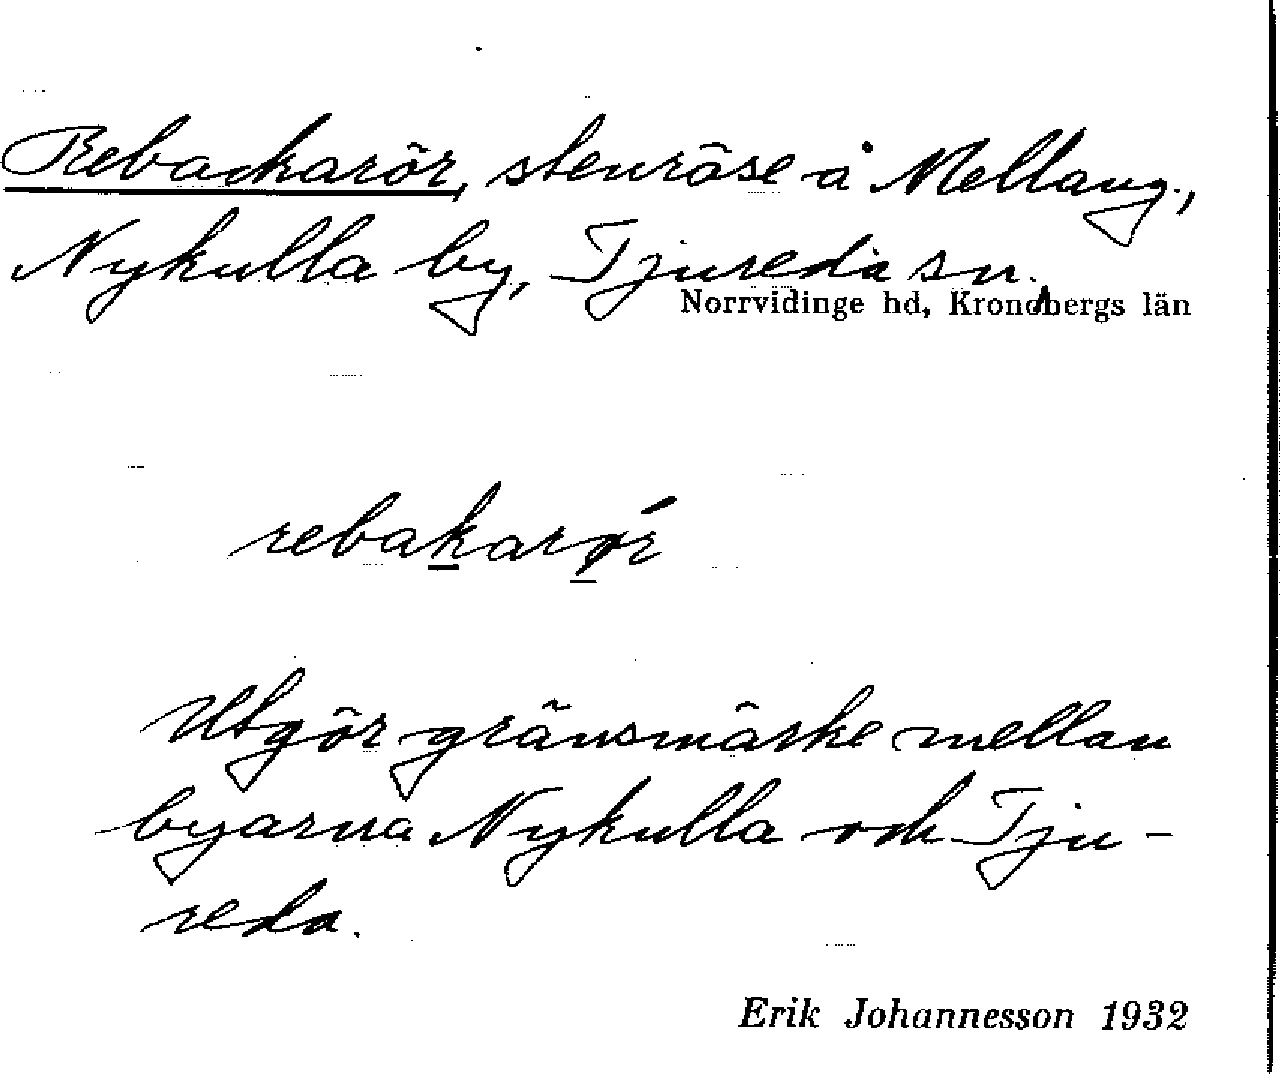 Rebackarör, stenröse å Mellang.,
Nykulla by, Tjureda sn.
Norrvidinge hd, Kronobergs län
rebakarør
Utgör gränsmärke mellan
byarna Nykulla och Tju-
reda.
Erik Johannesson 1932